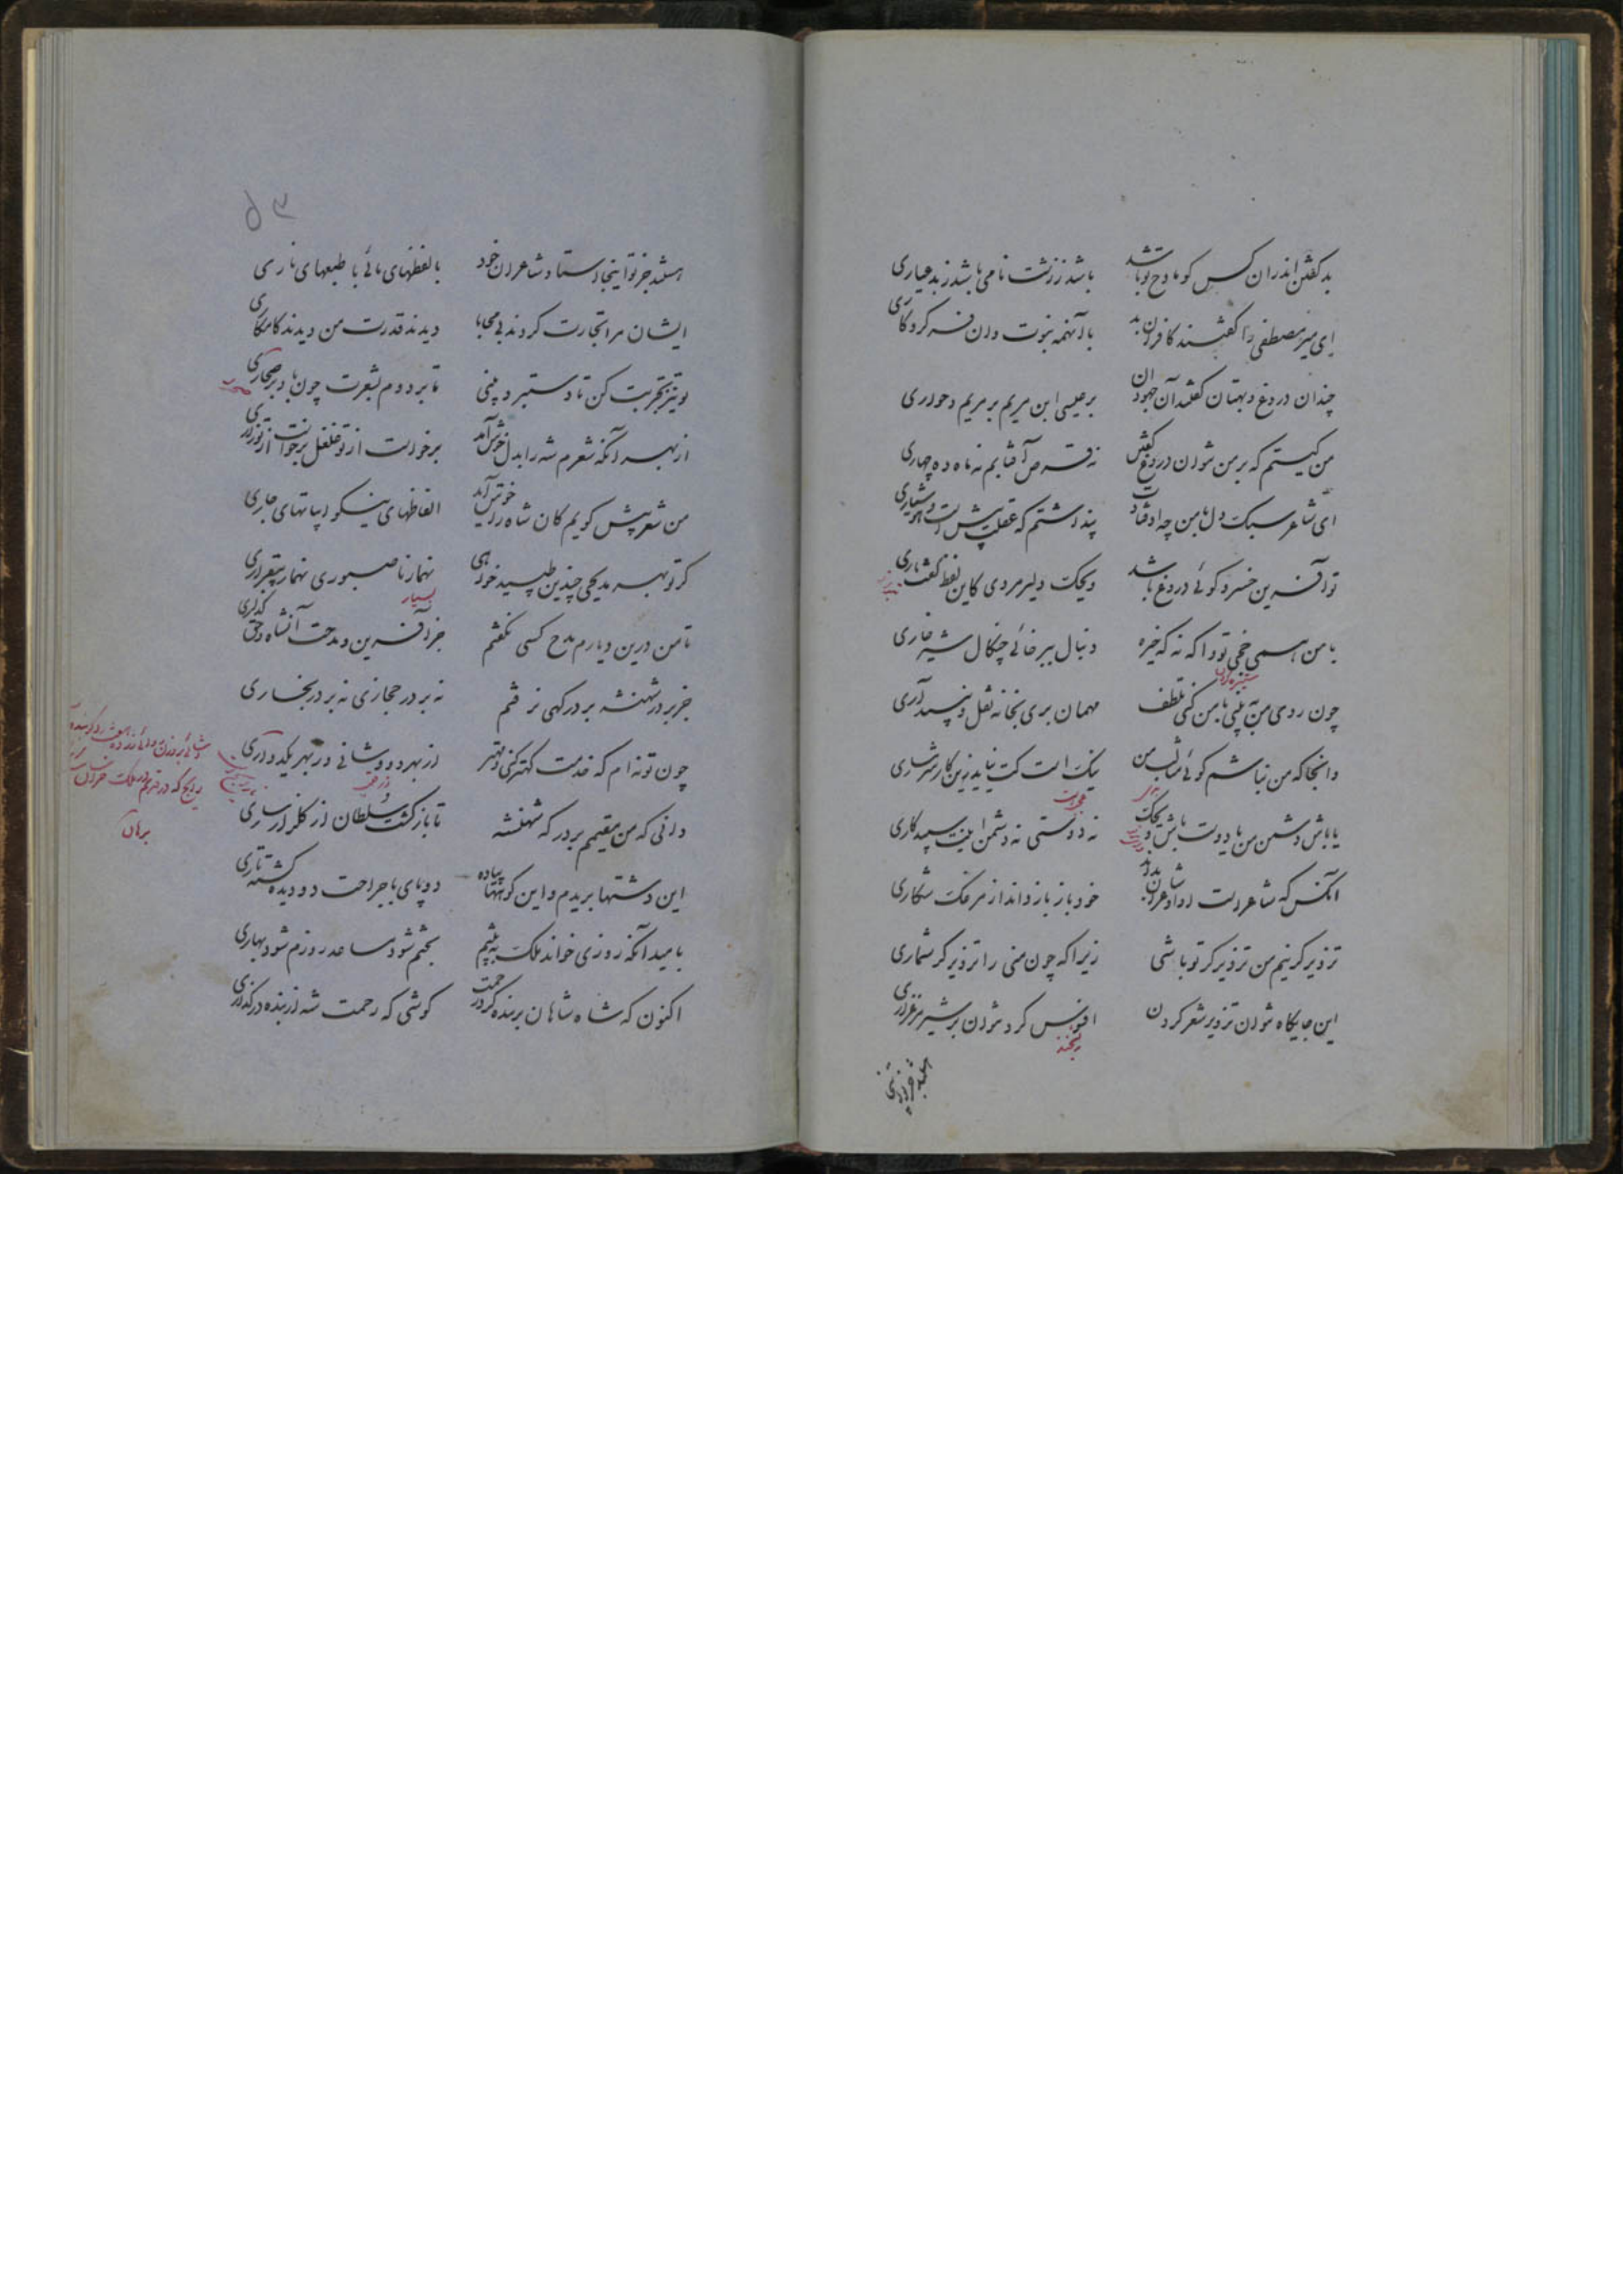 بد گفتن اندران کس کو مادح تو باشد باشد ز زشت نامی باشد ز بد عیاری
ای میر مصطفی را گفتند کافران بد با آنهمه نبوت وان فر کردگاری
چندان دروغ و بهتان گفتند آن جهودان بر عیسی ابن مریم بر مریم و حواری
من کیستم که بر من نتوان دروغ گفتن نه قرص آفتابم نه ماه ده چهاری
ای شاعر سبک دل با من چه اوفتادت پنداشتم که عقلت بیش است و هوشیاری
تو آفرین خسرو گوئی دروغ باشد ویحک دلیر مردی کاین لفظ گفت یاری
با من همی چخی تو و اگه نه که خیره دنبال ببر خائی چنگال شیر خاری
ستیزه کردن
چون روی من به بینی با من کنی تلطف مهمان بری بخانه نقل و نبید آری
وانجا که من نباشم گوئی مثالب من نیک است کت نیاید زین کار شرمساری
یا باش دشمن من یا دوست باش ویحک نه دوستی نه دشمن اینت سیه کاری
آنکس که شاعر است او داند شاعران بد خود باز باز داند از مرغک شکاری
تزویرگر نیم من تزویرگر تو باشی زیرا که چون منی را تزویرگر شماری
این جایگاه نتوان تزویر شعر کردن افسوس کرد نتوان بر شیر مرغزاری
ریشخند
هستند جز تو اینجا
۵۳
هستند جز تو اینجا استاد شاعران خود با لفظهای مائی با طبعهای ناری
ایشان مرا تجارت کردند بی محابا دیدند قدرت من دیدند کامکاری
تو نیز تجربت کن تا دستبرد بینی تا بر دوم بشعرت چون باد بر صحاری
از بهر آنکه شعرم شه را بدل خوش آمد برخواست از تو غلغل برخواست از تو زاری
من شعر بیش گویم کان شاه را خوش آید الفاظهای نیکو ابیاتهای جاری
گر تو بهر مدیحی چندین طپید خواهی نهمار ناصبوری نهمار بیقراری
بسیار
تا من درین دیارم مدح کسی نگفتم جز آفرین و مدحت آنشاه حق گذاری
جز بر در شهنشه بر درگهی نرفتم نه بر در حجازی نه بر در بخاری
چون تو نه ام که خدمت کهتر کنی و مهتر از بهر دو وشانی وز بهر یکدو آری
دانی که من مقیمم بر درگه شهنشه تا بازگشت سلطان از گلزار ساری
این دشتها بریدم و این کوهها پیاده دو پای با جراحت دو دیده گشته تاری
بامید آنکه روزی خواند ملک به پیشم بختم شود مساعد روزم شود بهاری
اکنون که شاه شاهان بر بنده کرد رحمت کوشی که رحمت شه از بنده در گذاری
برهان